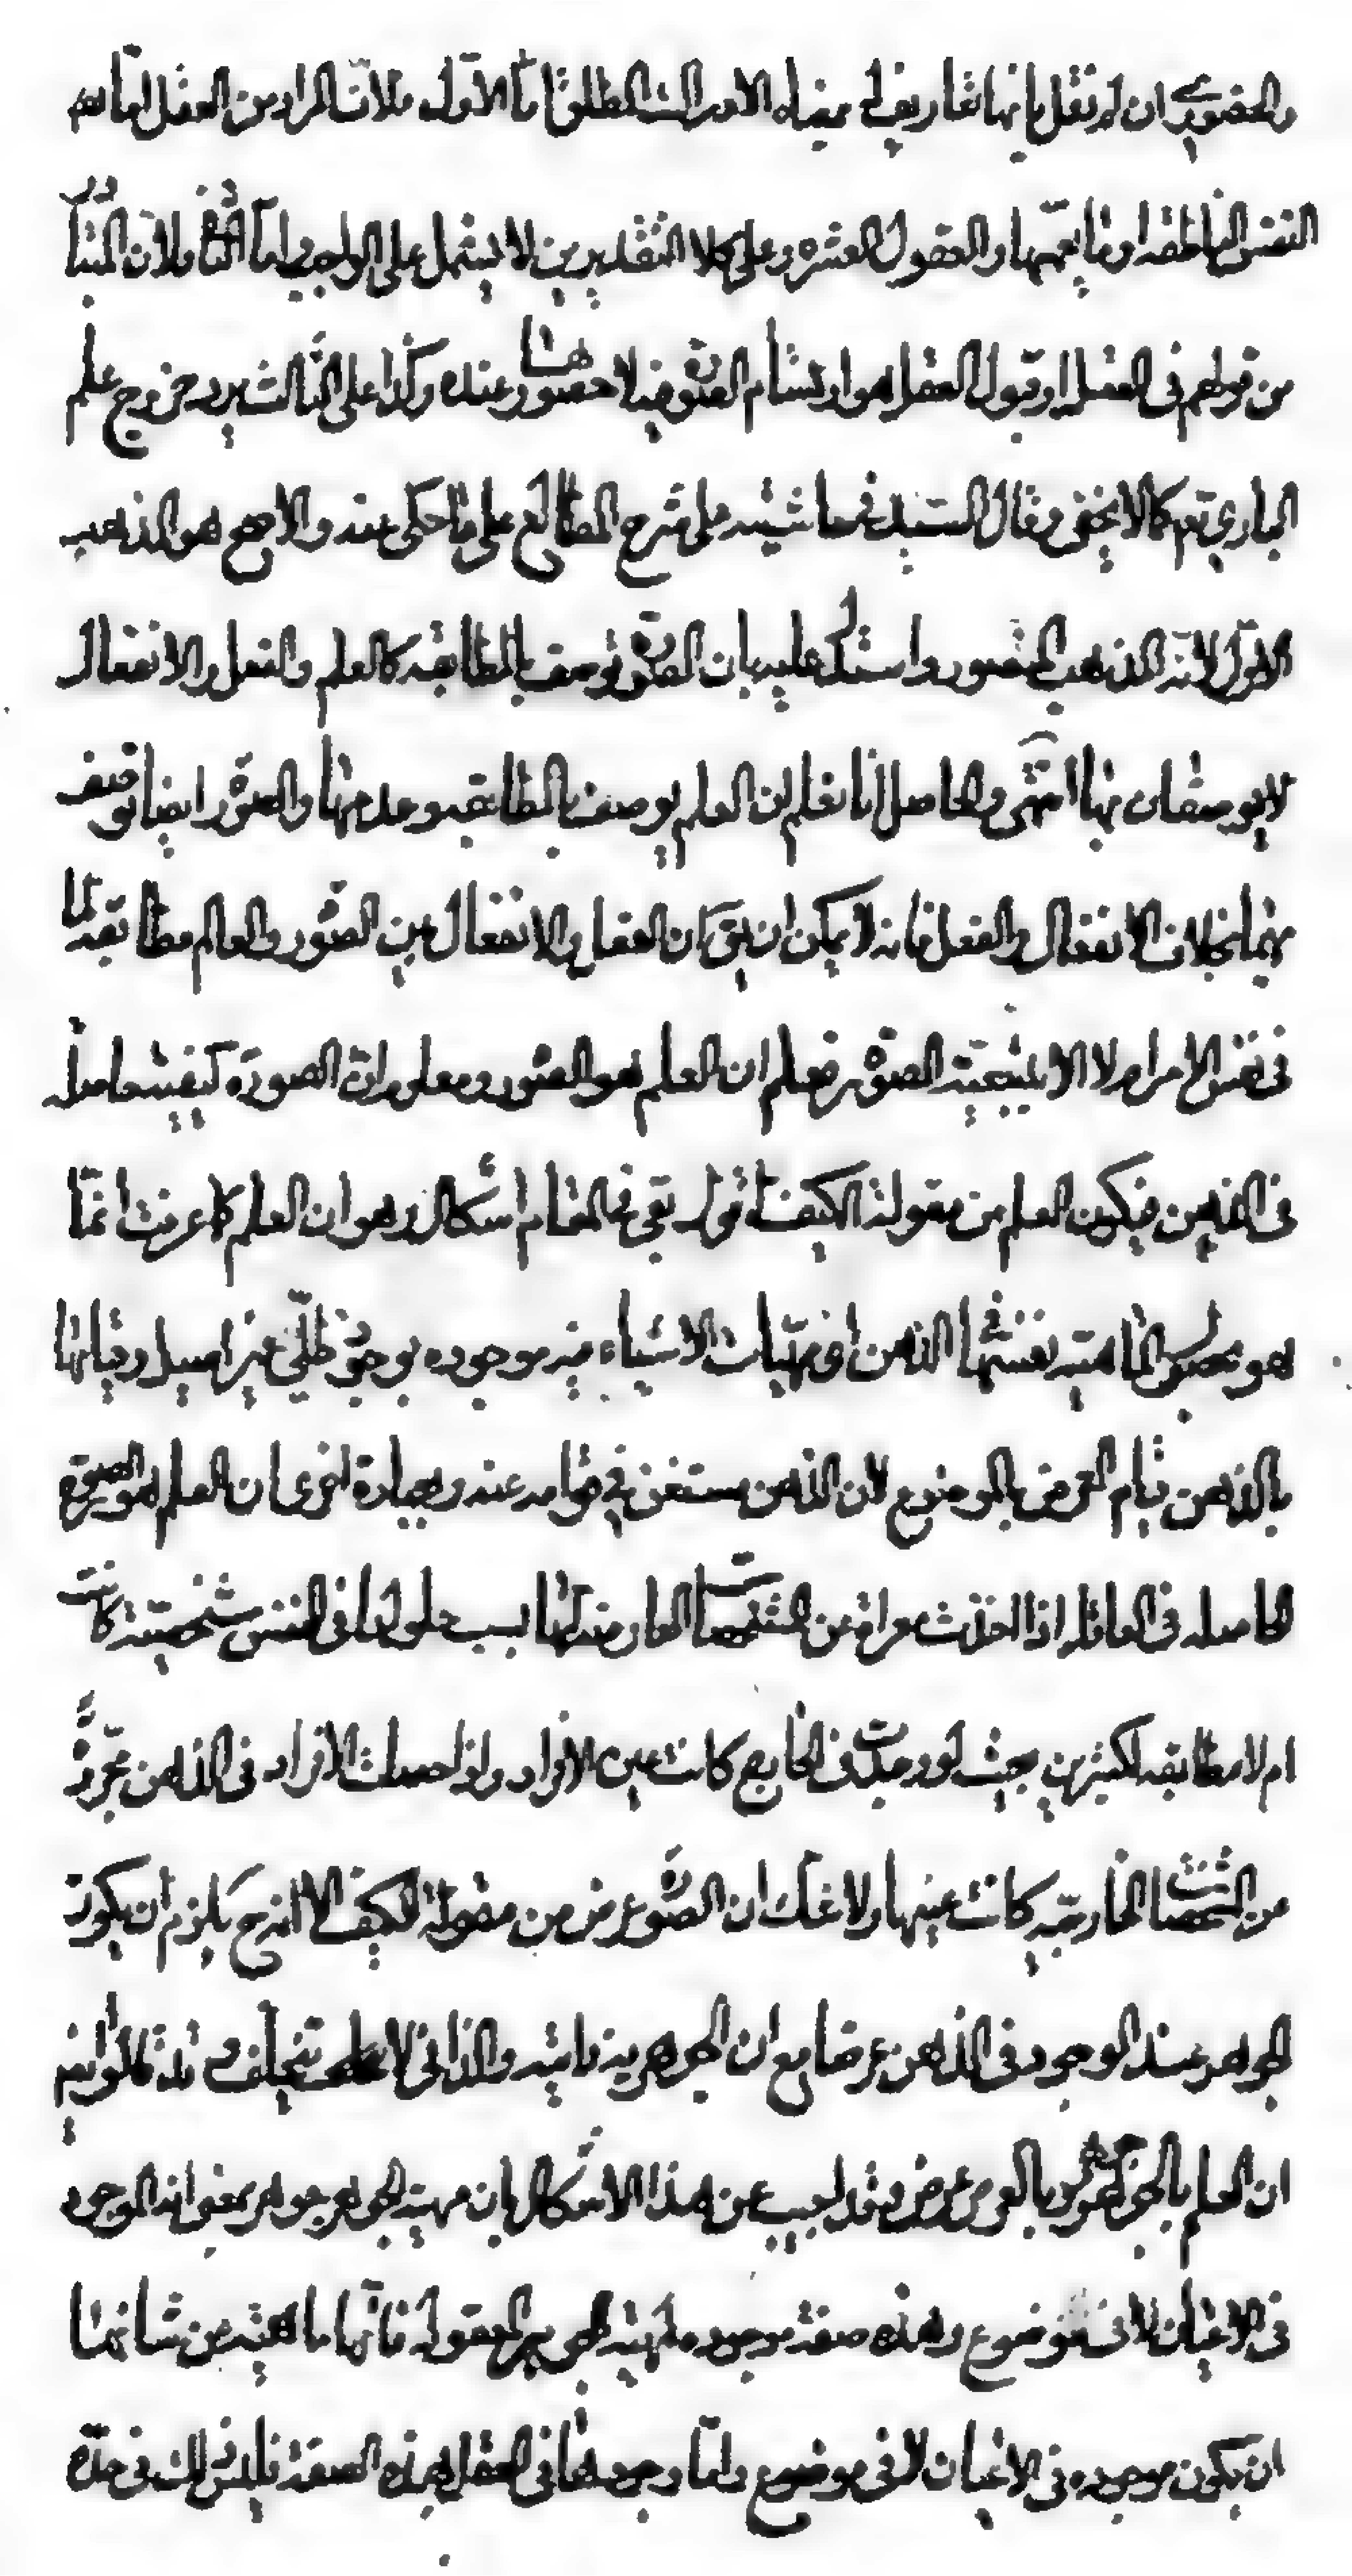 والحضوري ان لم نقل بانها تعاريف لمبدء الادراك المطلق اما الاول فلان المراد من العقل اما
النفس الناطقه او ما يعمها والعقول العشره وعلى كلا التقديرين لا يشمل على الواجب واما الثانى فلان المتبادر
من قولهم فى العقل او قبول العقل هو ارتسام الصورة فيه لا حضورها عنده وكذا على الثالث يرد خروج علم
البارى تعم كما لا يخفى وقال السيد فى حاشيته على شرح المطالع على ما حكى عنه والاصح هو المذهب
الاول لانه المذهب المنصور واستدل عليه بان الصورة توصف بالمطابقه كالعلم والفعل والانفعال
لا يوصفان بها انتهى والحاصل انا نعلم ان العلم يوصف بالمطابقه وعدمها والصورة ايضا توصف
بهما بخلاف الانفعال والفعل فانه لا يمكن ان يق ان الفعل والانفعال بين الصور والعالم مطابقه لما
فى نفس الامر ام لا الا بتبعية الصورة فعلم ان العلم هو الصورة ومعلوم ان الصورة كيفية حاصله
فى الذهن فيكون العلم من مقولة الكيف اقول بقى فى المقام اشكال وهو ان العلم كما عرفت انما
هو حصول الماهيه نفسها فى الذهن اذ مهيات الاشياء فيه موجوده بوجود ظلى غير اصيل وقيامها
بالذهن قيام العرض بالموضوع لان الذهن مستغن فى قوامه عنه وبعبارة اخرى ان العلم هو الصورة
الحاصله فى العاقل اذا اخذت معراة عن التشخصات العارضه لها بسبب حلولها فى النفس شخصية كانت
ام لا مطابقه لكثيرين بحيث لو وجدت فى الخارج كانت عين الافراد واذا حصلت الافراد فى الذهن مجردة
عن التشخصات الخارجيه كانت عينها ولا شك ان الصورة عرض من مقولة الكيف الا انه ح يلزم ان يكون
الجوهر عند الوجود فى الذهن عرضا مع ان الجوهرية ذاتيه والذاتى لا يتخلف
ان العلم بالجوهر جوهر وبالعرض عرض وقد اجيب عن هذا الاشكال بان مهية الجوهر جوهر بمعنى انه الموجود
فى الاعيان لا فى موضوع وهذه صفة موجوده لمهية الجوهر المعقوله فانها ماهيه من شانها
ان يكون موجوده فى الاعيان لا فى موضوع واما وجودها فى العقل بهذه الصفة فليس ذلك فى حده